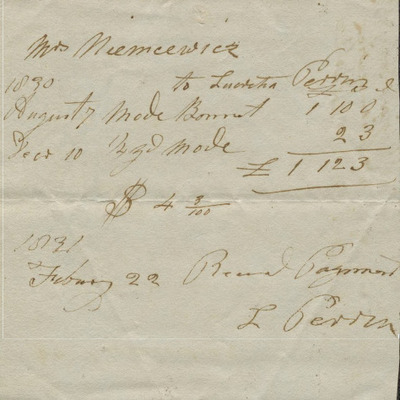 Mrs Niemcewicz
1830 to Lucretia Perrin
August 7 Mode Bonnet 1 10 0
Decr 10 ½ yd Mode 2 3
£ 1 12 3
$ 4 3/100
1831
Febuary 22 Receved Payment
L Perrin